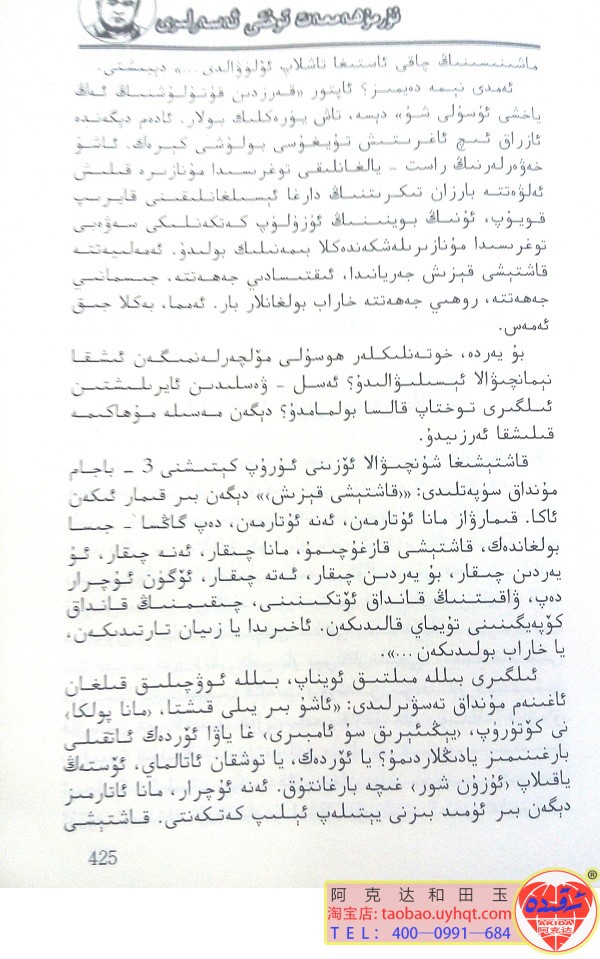 نۇرمۇھەممەت توختى ئەسەرلىرى
ماشىنىسىنىڭ چاقى ئاستىغا تاشلاپ ئۆلۈۋالدى...» دېيىشتى.
ئەمدى نېمە دەيمىز؟ ئاپتور «قەرزدىن قۇتۇلۇشنىڭ ئەڭ
ياخشى ئۇسۇلى شۇ» دېسە، تاش يۈرەكلىك بولار. ئادەم دېگەندە
ئازراق ئىچ ئاغرىتىش تۇيغۇسى بولۇشى كېرەك. ئاشۇ
خەۋەرلەرنىڭ راست - يالغانلىقى توغرىسىدا مۇنازىرە قىلىش
ئەلۋەتتە بارزان تىكرىتنىڭ دارغا ئېسىلغانلىقىنى قايرىپ
قويۇپ، ئۇنىڭ بوينىنىڭ ئۈزۈلۈپ كەتكەنلىكى سەۋەبى
توغرىسىدا مۇنازىرىلەشكەندەكلا بىمەنىلىك بولىدۇ. ئەمەلىيەتتە
قاشتېشى قېزىش جەريانىدا، ئىقتىسادىي جەھەتتە، جىسمانىي
جەھەتتە، روھىي جەھەتتە خاراب بولغانلار بار. ئەمما، بەكلا جىق
ئەمەس.
بۇ يەردە، خوتەنلىكلەر ھوسۇلى مۆلچەرلەنمىگەن ئىشقا
نېمانچىۋالا ئېسىلىۋالىدۇ؟ ئەسل - ۋەسلىدىن ئايرىلىشتىن
ئىلگىرى توختاپ قالسا بولمامدۇ؟ دېگەن مەسىلە مۇھاكىمە
قىلىشقا ئەرزىيدۇ.
قاشتېشىغا شۇنچىۋالا ئۆزىنى ئۇرۇپ كېتىشنى 3 - باجام
مۇنداق سۈپەتلىدى: «‹قاشتېشى قېزىش› دېگەن بىر قىمار ئىكەن
ئاكا. قىمارۋاز مانا ئۇتارمەن، ئەنە ئۇتارمەن، دەپ گاڭسا - جىسا
بولغاندەك، قاشتېشى قازغۇچىمۇ، مانا چىقار، ئەنە چىقار، ئۇ
يەردىن چىقار، بۇ يەردىن چىقار، ئەتە چىقار، ئۆگۈن ئۇچرار
دەپ، ۋاقىتنىڭ قانداق ئۆتكىنىنى، چىقىمنىڭ قانداق
كۆپەيگىنىنى تۇيماي قالىدىكەن. ئاخىرىدا يا زىيان تارتىدىكەن،
يا خاراب بولىدىكەن...».
ئىلگىرى بىللە مىلتىق ئويناپ، بىللە ئوۋچىلىق قىلغان
ئاغىنەم مۇنداق تەسۋىرلىدى: «ئاشۇ بىر يىلى قىشتا، ‹مانا پولكا›
نى كۆتۈرۈپ، ‹يېڭىئېرىق سۇ ئامبىرى› غا ياۋا ئۆردەك ئاتقىلى
بارغىنىمىز يادىڭلاردىمۇ؟ يا ئۆردەك، يا توشقان ئاتالماي، ئۆستەڭ
ياقىلاپ ‹ئۇزۇن شور› غىچە بارغانتۇق. ئەنە ئۇچرار، مانا ئاتارمىز
دېگەن بىر ئۈمىد بىزنى يېتىلەپ ئېلىپ كەتكەنتى. قاشتېشى
425
阿克达和田玉
淘宝店: taobao.uyhqt.com
TEL: 400—0991—684
®
ئەقىدە
AKIDA
阿克达